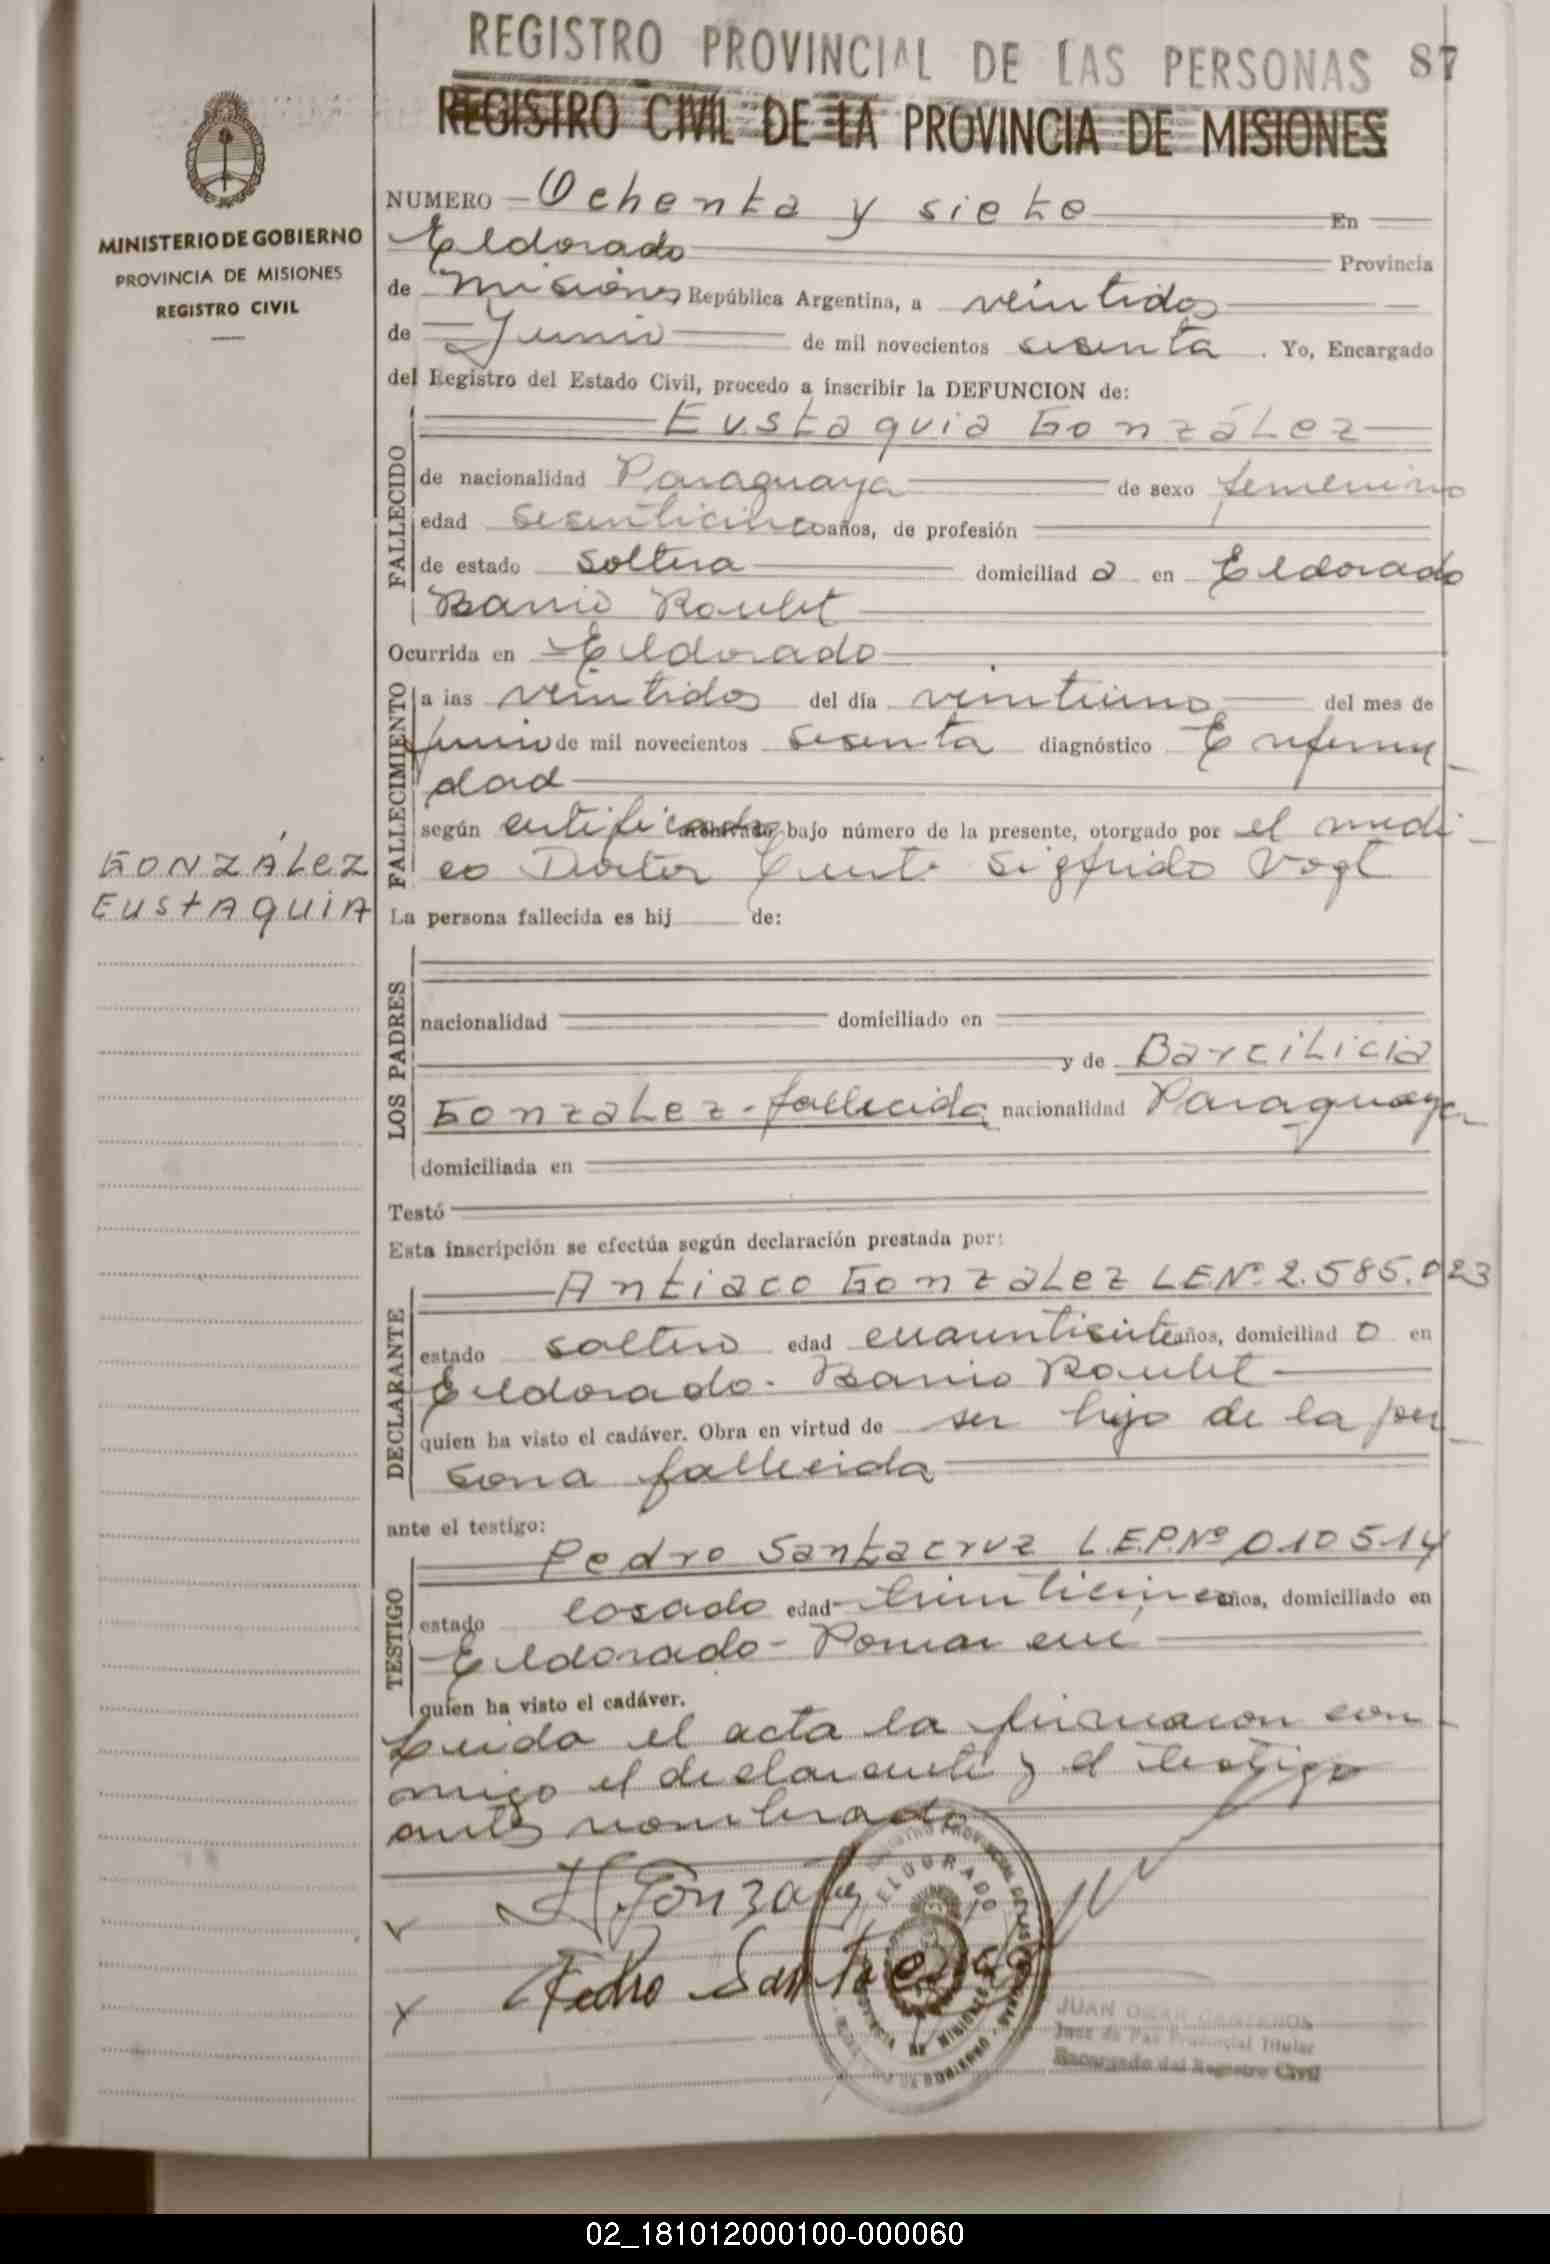 REGISTRO PROVINCIAL DE LAS PERSONAS 87
REGISTRO CIVIL DE LA PROVINCIA DE MISIONES
MINISTERIO DE GOBIERNO
PROVINCIA DE MISIONES
REGISTRO CIVIL
NUMERO Ochenta y siete En
Eldorado Provincia
de Misiones República Argentina, a veintidos
de Junio de mil novecientos sesenta . Yo, Encargado
del Registro del Estado Civil, procedo a inscribir la DEFUNCION de:
FALLECIDO
Eustaquia González
de nacionalidad Paraguaya de sexo femenino
edad sesenticinco años, de profesión
de estado soltera domiciliad a en Eldorado
Barrio Roulet
Ocurrida en Eldorado
FALLECIMIENTO
a las veintidos del día veintiuno del mes de
junio de mil novecientos sesenta diagnóstico Enferme-
dad
según certificado bajo número de la presente, otorgado por el medi-
co Doctor Sigfrido Vogt
GONZÁLEZ
EUSTAQUIA
La persona fallecida es hij de:
LOS PADRES
nacionalidad domiciliado en
y de Barcilicia
Gonzalez - fallecida nacionalidad Paraguaya
domiciliada en
Testó
Esta inscripción se efectúa según declaración prestada por:
DECLARANTE
Antiaco Gonzalez L.E.Nº 2.585.023
estado soltero edad cuarentisiete años, domiciliad o en
Eldorado - Barrio Roulet
quien ha visto el cadáver. Obra en virtud de ser hijo de la per-
sona fallecida
ante el testigo:
TESTIGO
Pedro Santacruz L.E.P.Nº 010514
estado casado edad treinticinco años, domiciliado en
Eldorado -
quien ha visto el cadáver.
Leida el acta la firmaron con-
migo el declarante y el testigo
antes nombrado
A Gonzalez
Pedro Santacruz
ELDORADO
JUAN OMAR
Juez de Paz Provincial Titular
Encargado del Registro Civil
02_181012000100-000060